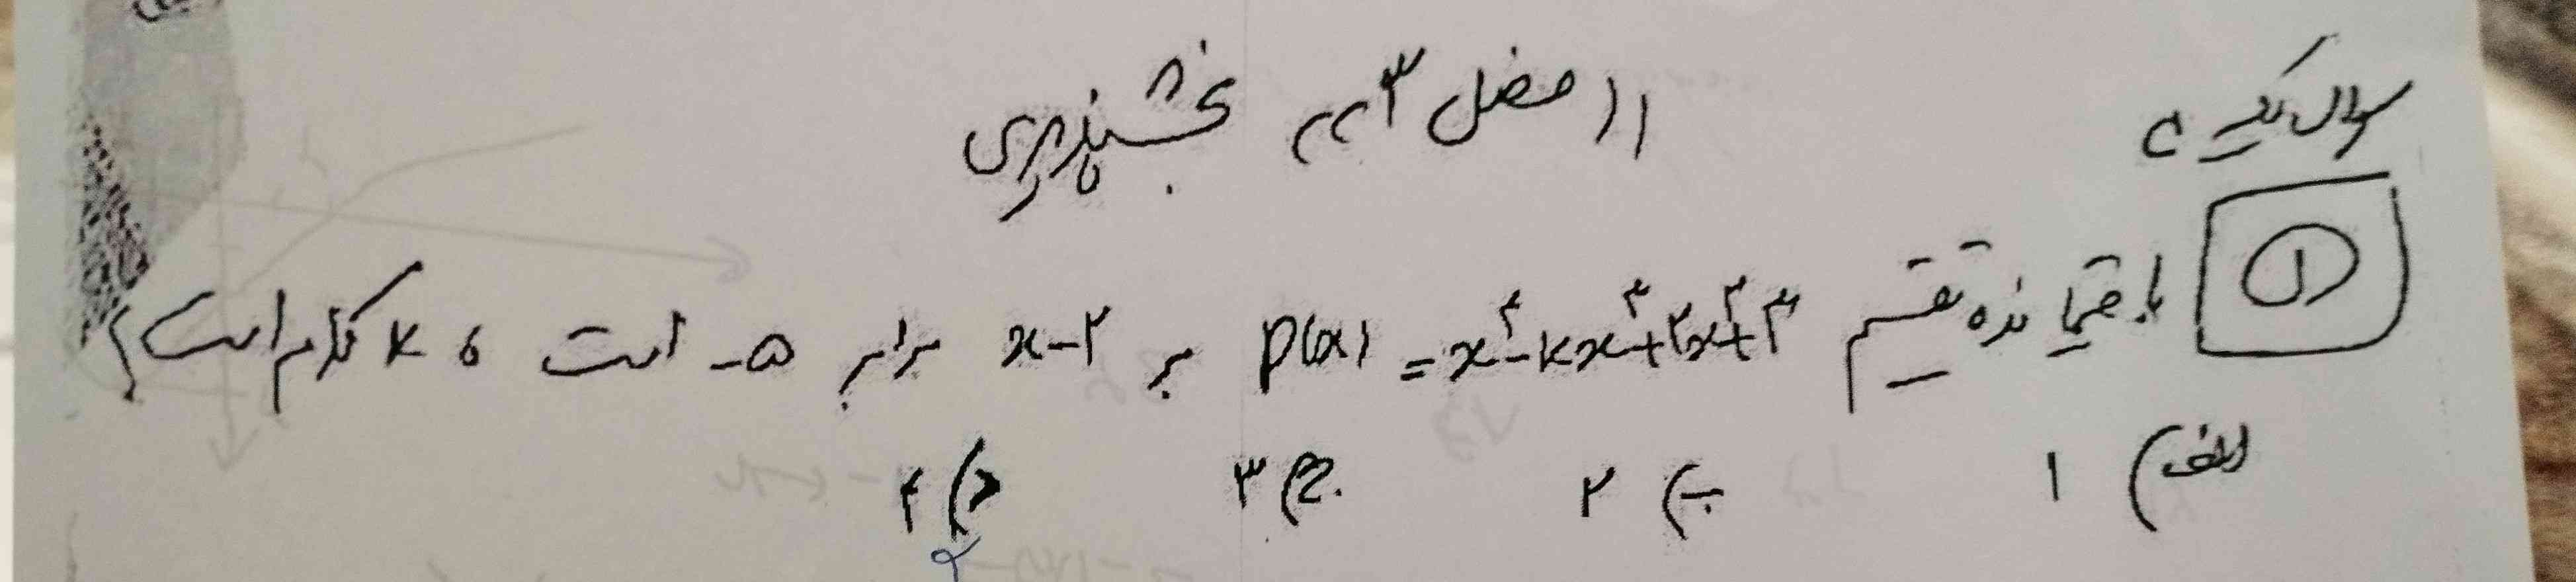 (( فصل ۳ )) بخشپذیری
۱ باقیمانده تقسیم p(x) = x⁴-kx³+2x²+3 بر x-۲ برابر ۵- است ، k کدام است؟
الف) ۱ ب) ۲ ج) ۳ د) ۴